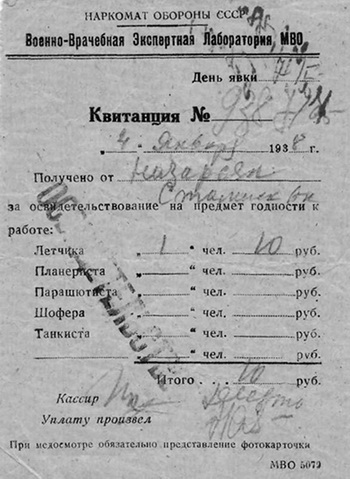 НАРКОМАТ ОБОРОНЫ СССР
Военно-Врачебная Экспертная Лаборатория МВО
День явки
Квитанция №
„ 4 „ Января 1938 г.
Получено от Назарбян
за освидетельствование на предмет годности к
работе:
Летчика „ 1 „ чел. 10 руб.
Планериста „ „ чел. руб.
Парашютиста „ „ чел. руб.
Шофера „ „ чел. руб.
Танкиста „ „ чел. руб.
Итого . . . 10 руб.
Кассир
Уплату произвел
При медосмотре обязательно представление фотокарточки
МВО 5079